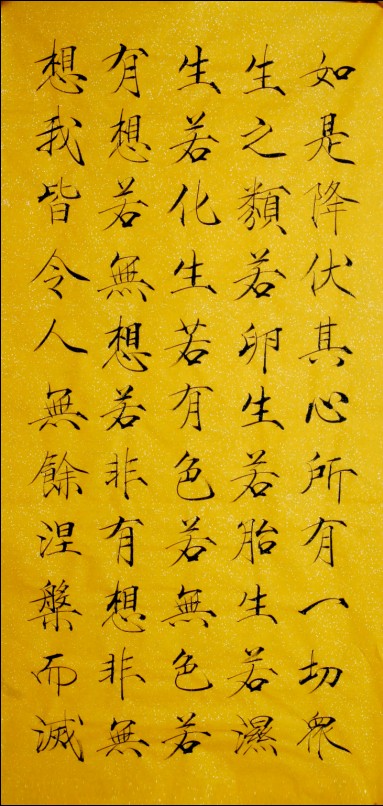 如是降伏其心所有一切眾
生之類若卵生若胎生若濕
生若化生若有色若無色若
有想若無想若非有想非無
想我皆令人無餘涅槃而滅